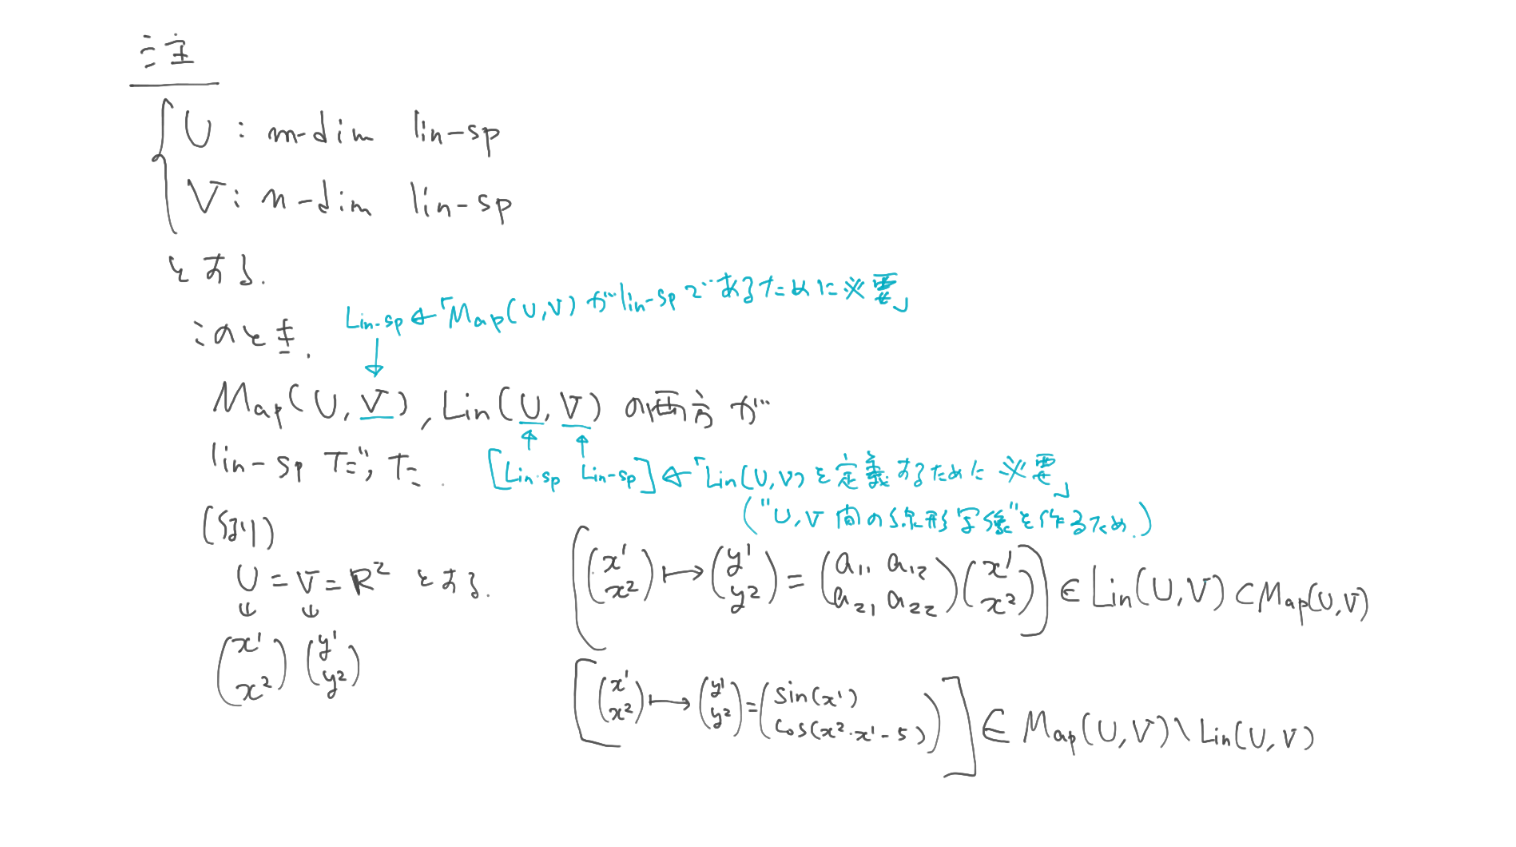 注
U : m-dim lin-sp
V : n-dim lin-sp
とする.
このとき.
Lin-sp ←「Map(U,V) が lin-sp であるために必要」
Map(U, V), Lin(U, V) の両方が
lin-sp だった.
[Lin-sp Lin-sp] ←「Lin(U,V) を定義するために必要」
("U,V 間の線形写像"を作るため.)
(例)
U = V = R² とする.
(x¹ x²) (y¹ y²)
[(x¹ x²) ↦ (y¹ y²) = (a₁₁ a₁₂ a₂₁ a₂₂)(x¹ x²)] ∈ Lin(U, V) ⊂ Map(U, V)
[(x¹ x²) ↦ (y¹ y²) = (sin(x¹) cos(x²·x¹-5))] ∈ Map(U, V) \ Lin(U, V)